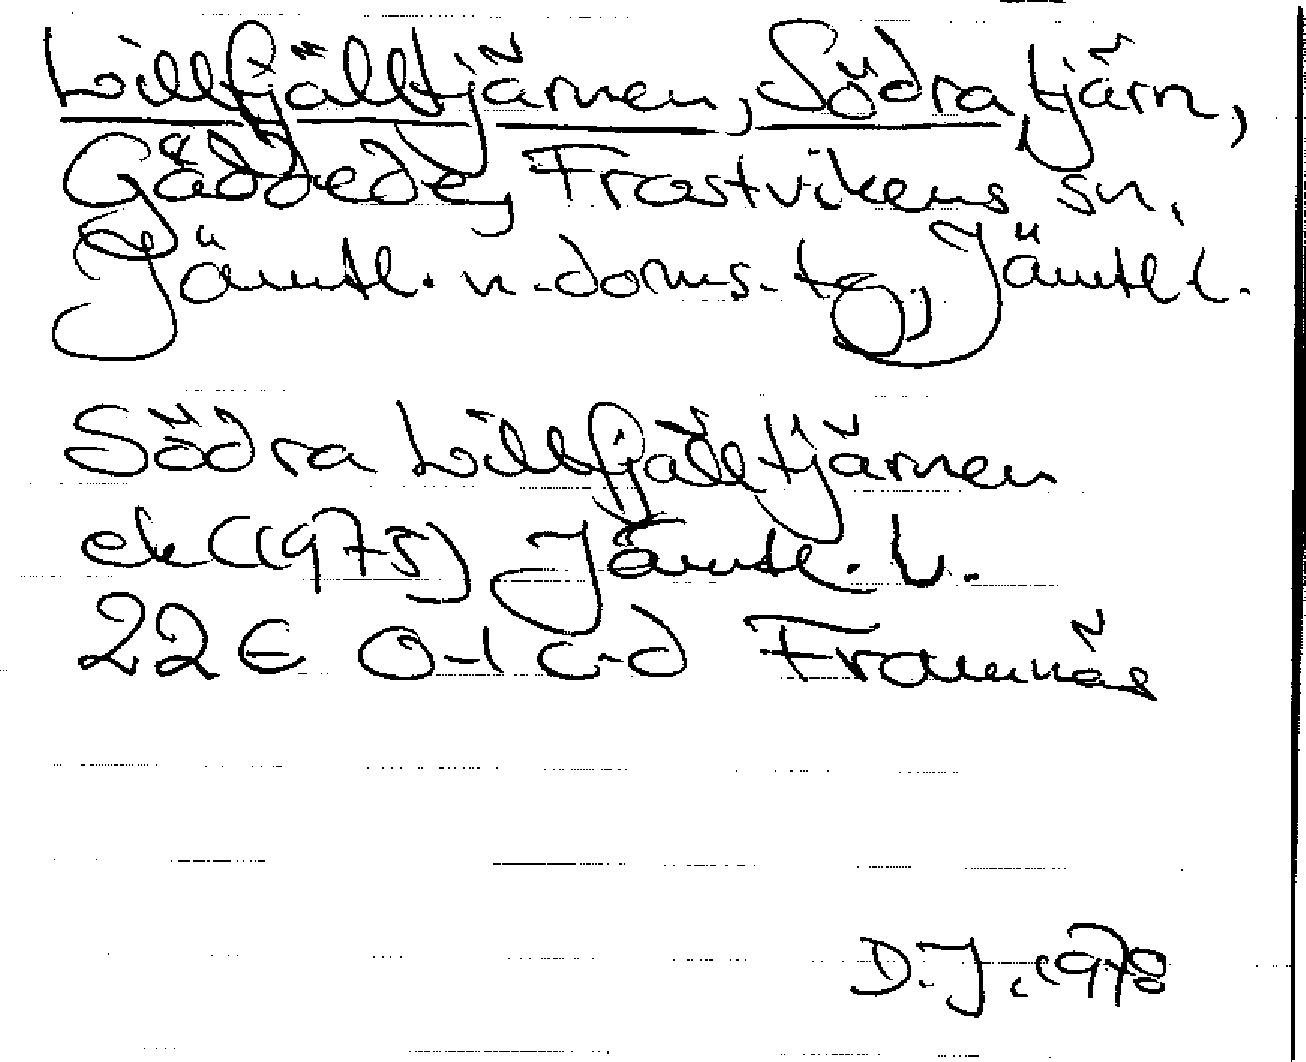 Lillfjälltjärnen, Södra, tjärn,
Gäddede, Frostvikens sn,
Jämtl. n. doms. tg, Jämtl l.
Södra Lillfjälltjärnen
ek (1975) Jämtl. l.
22E 0-1 c-d Framnäs
D. J. 1978